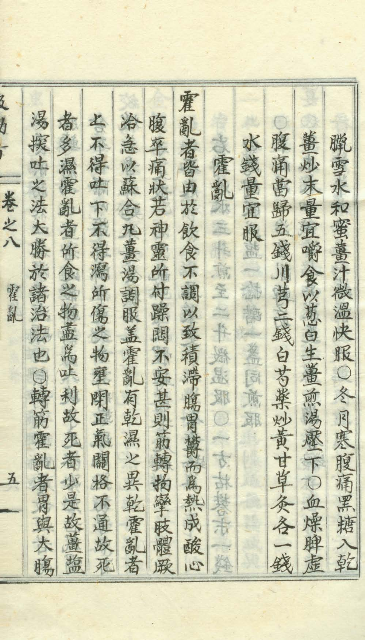 臘雪水和蜜薑汁微溫快服〇冬月寒腹痛黑糖入乾
薑炒末量宜嚼食以葱白生薑煎湯壓下〇血燥脾虛
〇腹痛當歸五錢川芎二錢白芍藥炒黃甘草灸各一錢
水錢量宜服
霍亂
霍亂者皆由於飮食不調以致積滯膓胃鬱而爲熱成酸心
腹卒痛狀若神靈所付躁悶不安甚則筋轉拘攣肢體厥
冷急以蘇合丸薑湯調服盖霍亂有乾濕之異乾霍亂者
上不得吐下不得瀉所傷之物壅閉正氣關格不通故死
者多濕霍亂者所食之物盡爲吐利故死者少是故薑盐
湯探吐之法大勝於諸治法也〇轉筋霍亂者胃與大膓
卷之八 霍亂 五